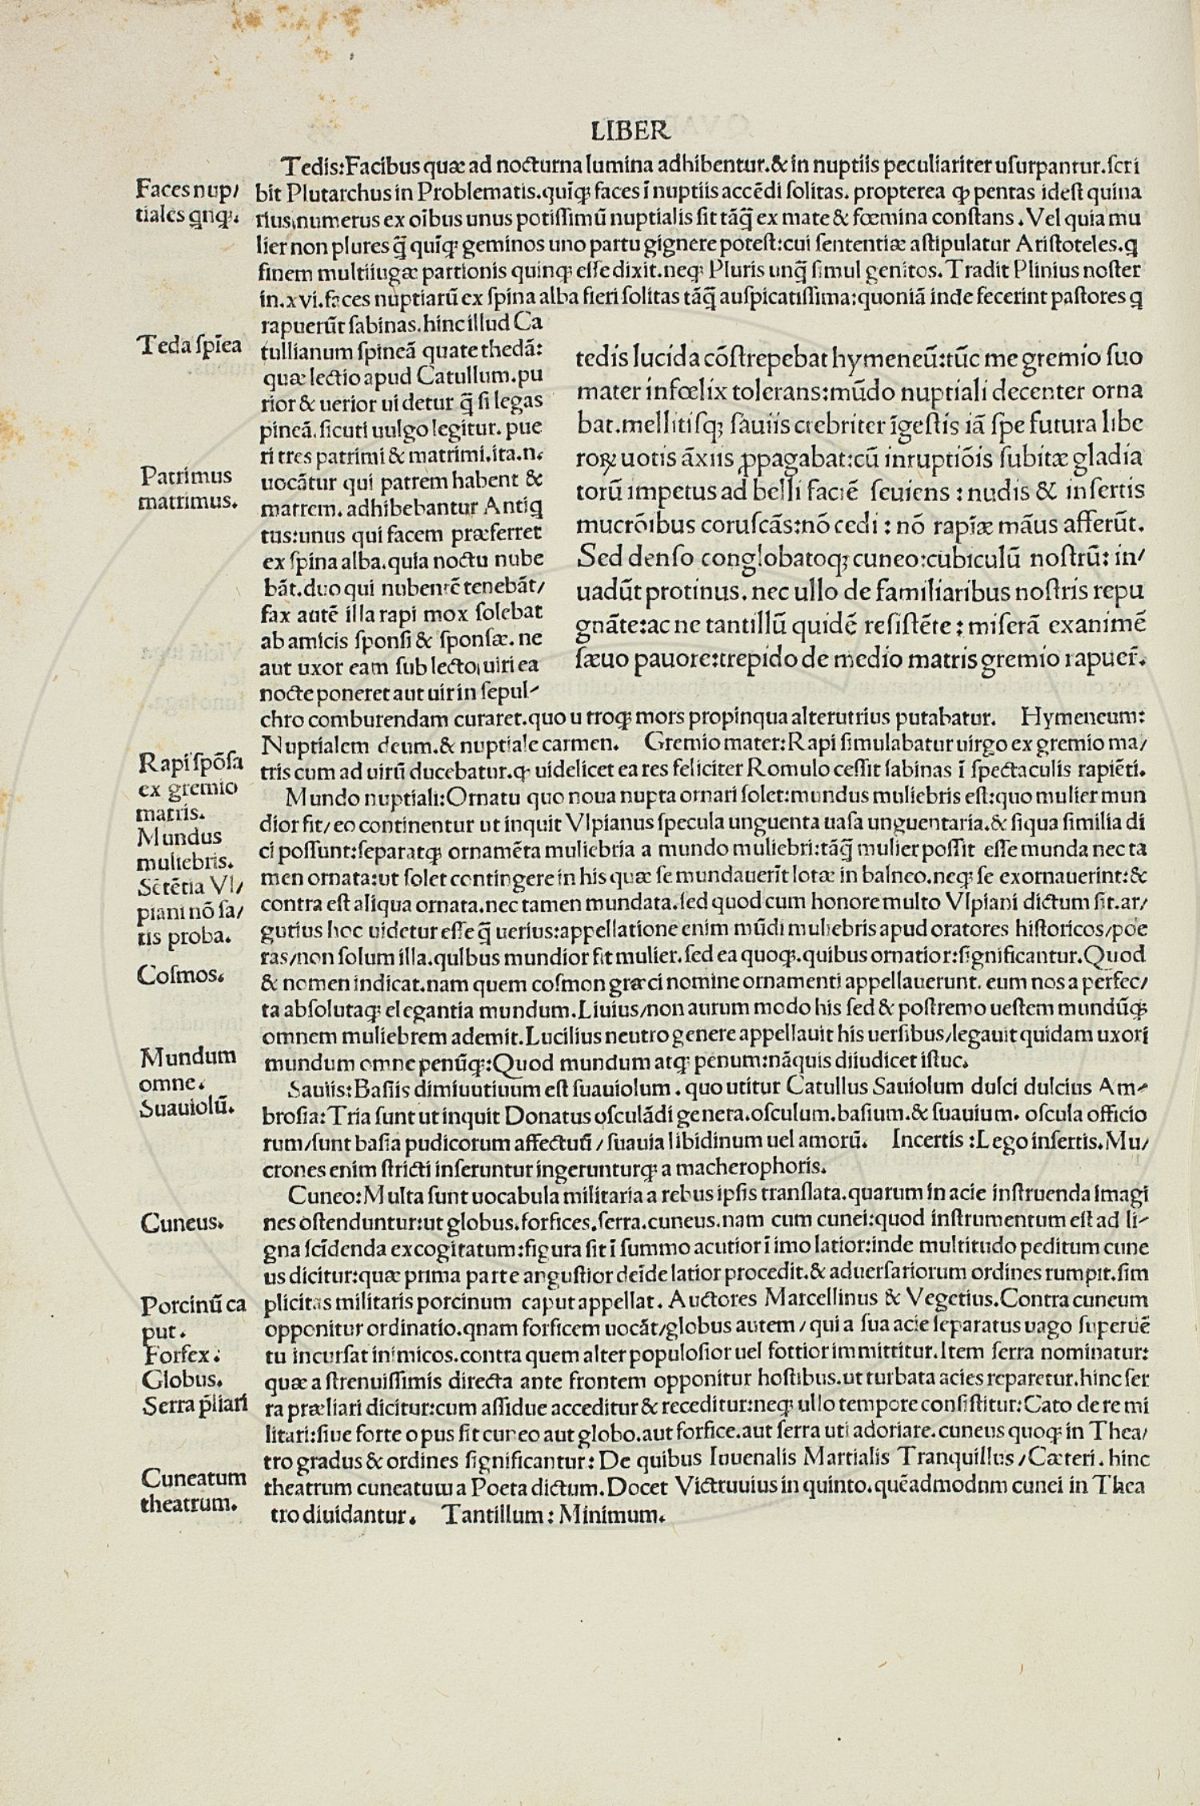 LIBER
Tedis:Facibus quæ ad nocturna lumina adhibentur.& in nuptiis peculiariter uſurpantur.ſcri
Faces nup/
tiales qnq;.
bit Plutarchus in Problematis.quīq; faces ī nuptiis accēdi ſolitas. propterea ꝙ pentas ideſt quina
rius,numerus ex oībus unus potiſſimū nuptialis ſit tāq̄ ex mate & fœmina conſtans. Vel quia mu
lier non plures q̄ quīq; geminos uno partu gignere poteſt:cui ſententiæ aſtipulatur Ariſtoteles.q
finem multiiugæ partionis quinq; eſſe dixit.neq; Pluris unq̄ ſimul genitos. Tradit Plinius noſter
in.xvi.faces nuptiarū ex ſpina alba fieri ſolitas tāq̄ auſpicatiſſima:quoniā inde fecerint paſtores q
rapuerūt ſabinas.hinc illud Ca
Teda ſpīea
tullianum ſpineā quate thedā:
quæ lectio apud Catullum.pu
rior & uerior ui detur q̄ ſi legas
pineā.ſicuti uulgo legitur. pue
ri tres patrimi & matrimi.ita.n.
Patrimus
matrimus.
uocātur qui patrem habent &
matrem. adhibebantur Antiq
tus:unus qui facem præferret
ex ſpina alba.quia noctu nube
bāt.duo qui nubentē tenebāt/
fax autē illa rapi mox ſolebat
ab amicis ſponſi & ſponſæ. ne
aut uxor eam ſub lecto,uiri ea
nocte poneret aut uir in ſepul-
tedis lucida cōſtrepebat hymeneū:tūc me gremio ſuo
mater infœlix tolerans:mūdo nuptiali decenter orna
bat.mellitiſq; ſauiis crebriter īgeſtis iā ſpe futura libe
roꝝ uotis āxiis ꝓpagabat:cū inruptiōis ſubitæ gladia
torū impetus ad belli faciē ſeuiens : nudis & inſertis
mucrōibus coruſcās:nō cedi : nō rapīæ māus afferūt.
Sed denſo conglobatoq; cuneo:cubiculū noſtrū: in/
uadūt protinus. nec ullo de familiaribus noſtris repu
gnāte:ac ne tantillū quidē reſiſtēte : miſerā exanimē
ſæuo pauore:trepido de medio matris gremio rapuer̄.
chro comburendam curaret.quo u troq; mors propinqua alterutrius putabatur. Hymeneum:
Nuptialem deum.& nuptiale carmen. Gremio mater:Rapi ſimulabatur uirgo ex gremio ma/
Rapi ſpōſa
ex gremio
matris.
tris cum ad uirū ducebatur.ꝙ uidelicet ea res feliciter Romulo ceſſit ſabinas ī ſpectaculis rapiēti.
Mundo nuptiali:Ornatu quo noua nupta ornari ſolet:mundus muliebris eſt:quo mulier mun
Mundus
muliebris.
dior fit/eo continentur ut inquit Vlpianus ſpecula unguenta uaſa unguentaria.& ſiqua ſimilia di
ci poſſunt:ſeparatq; ornamēta muliebria a mundo muliebri:tāq̄ mulier poſſit eſſe munda nec ta
Sētētia Vl/
piani nō ſa/
tis proba.
men ornata:ut ſolet contingere in his quæ ſe mundauerīt lotæ in balneo.neq; ſe exornauerint:&
contra eſt aliqua ornata.nec tamen mundata.ſed quod cum honore multo Vlpiani dictum ſit.ar/
gutius hoc uidetur eſſe q̄ uerius:appellatione enim mūdi muliebris apud oratores hiſtoricos/poe
ras/non ſolum illa.quibus mundior fit mulier.ſed ea quoq;.quibus ornatior:ſignificantur.Quod
Coſmos.
& nomen indicat.nam quem coſmon græci nomine ornamenti appellauerunt. eum nos a perfec/
ta abſolutaq; elegantia mundum.Liuius/non aurum modo his ſed & poſtremo ueſtem mundūq;
omnem muliebrem ademit.Lucilius neutro genere appellauit his uerſibus/legauit quidam uxori
Mundum
omne.
mundum omne penūq;:Quod mundum atq; penum:nāquis diiudicet iſtuc.
Suauiolū.
Sauiis:Baſiis dimiuutiuum eſt ſuauiolum. quo utitur Catullus Sauiolum dulci dulcius Am-
broſia:Tria ſunt ut inquit Donatus oſculādi genera.oſculum.baſium.& ſuauium. oſcula officio
rum/ſunt baſia pudicorum affectuū/ſuauia libidinum uel amorū. Incertis :Lego inſertis.Mu/
crones enim ſtricti inſeruntur ingerunturq; a macherophoris.
Cuneo:Multa ſunt uocabula militaria a rebus ipſis tranſlata.quarum in acie inſtruenda imagi
Cuneus.
nes oſtenduntur:ut globus.forfices.ſerra.cuneus.nam cum cunei:quod inſtrumentum eſt ad li-
gna ſcīdenda excogitatum:figura ſit ī ſummo acutior ī imo latior:inde multitudo peditum cune
us dicitur:quæ prima parte anguſtior deīde latior procedit.& aduerſariorum ordines rumpit.ſim
Porcinū ca
put.
plicitas militaris porcinum caput appellat. Auctores Marcellinus & Vegetius.Contra cuneum
opponitur ordinatio.qnam forficem uocāt/globus autem/qui a ſua acie ſeparatus vago ſuperuē
Forfex.
tu incurſat inimicos.contra quem alter populoſior uel fottior immittitur.Item ſerra nominatur:
Globus.
quæ a ſtrenuiſſimis directa ante frontem opponitur hoſtibus.ut turbata acies reparetur.hinc ſer
Serra p̄liari
ra præliari dicitur:cum aſſidue acceditur & receditur:neq; ullo tempore conſiſtitur:Cato de re mi
litari:ſiue forte o pus ſit cuneo aut globo.aut forfice.aut ſerra uti adoriare.cuneus quoq; in Thea/
tro gradus & ordines ſignificantur: De quibus Iuuenalis Martialis Tranquillus/Cæteri. hinc
Cuneatum
theatrum.
theatrum cuneatum a Poeta dictum. Docet Victruuius in quinto.quēadmodnm cunei in Thea
tro diuidantur. Tantillum: Minimum.